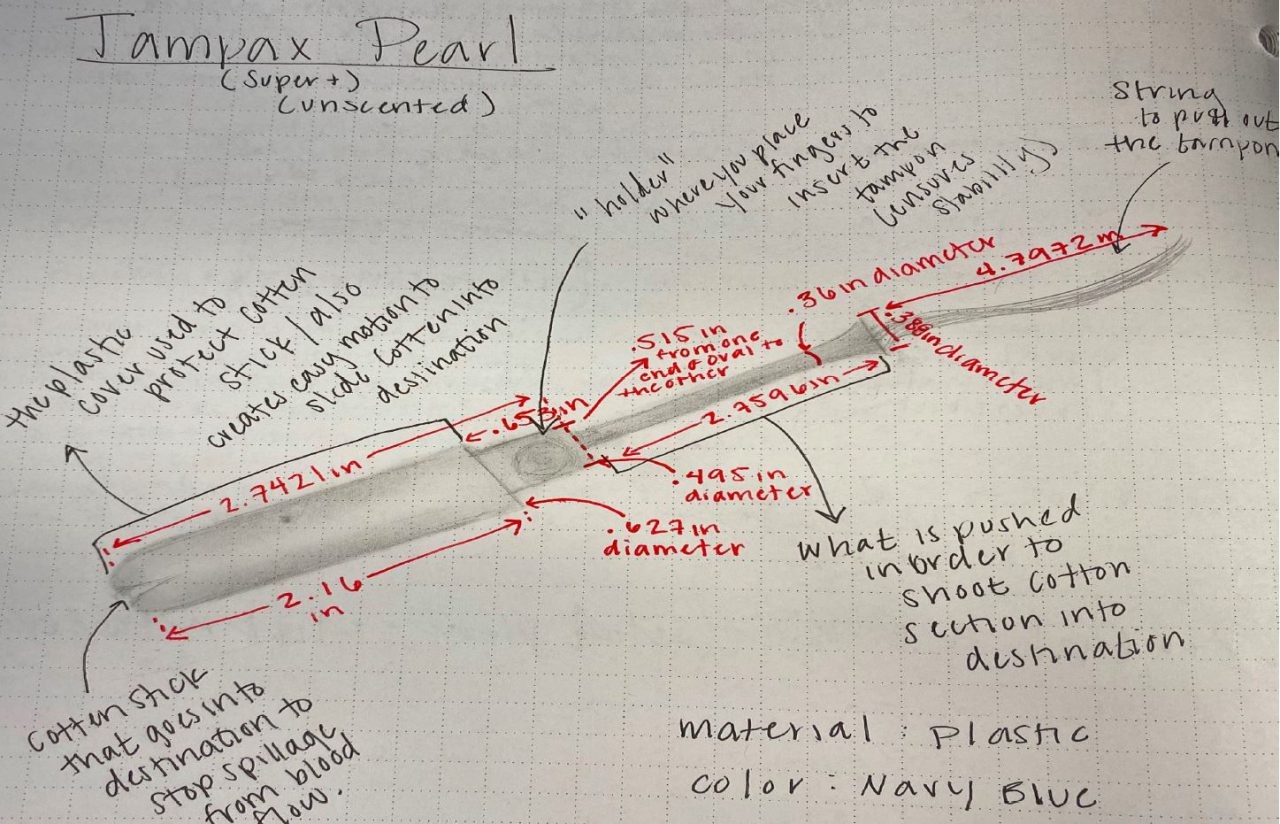 Tampax Pearl
(Super+)
(unscented)
String
to push out
the tampon
"holder"
where you place
your fingers to
insert the
tampon
(ensures
stability)
the plastic
cover used to
protect cotten
stick / also
creates easy motion to
slede cotten into
destination
.36 in diameter
4.7972 in
.388in diameter
.515 in
from one
end of oval to
the other
.653 in
2.7596 in
2.7421 in
.495 in
diameter
.627 in
diameter
2.16
in
what is pushed
in order to
shoot cotton
section into
destination
cotten stick
that goes into
destination to
stop spillage
from blood
flow.
material : Plastic
color : Navy Blue